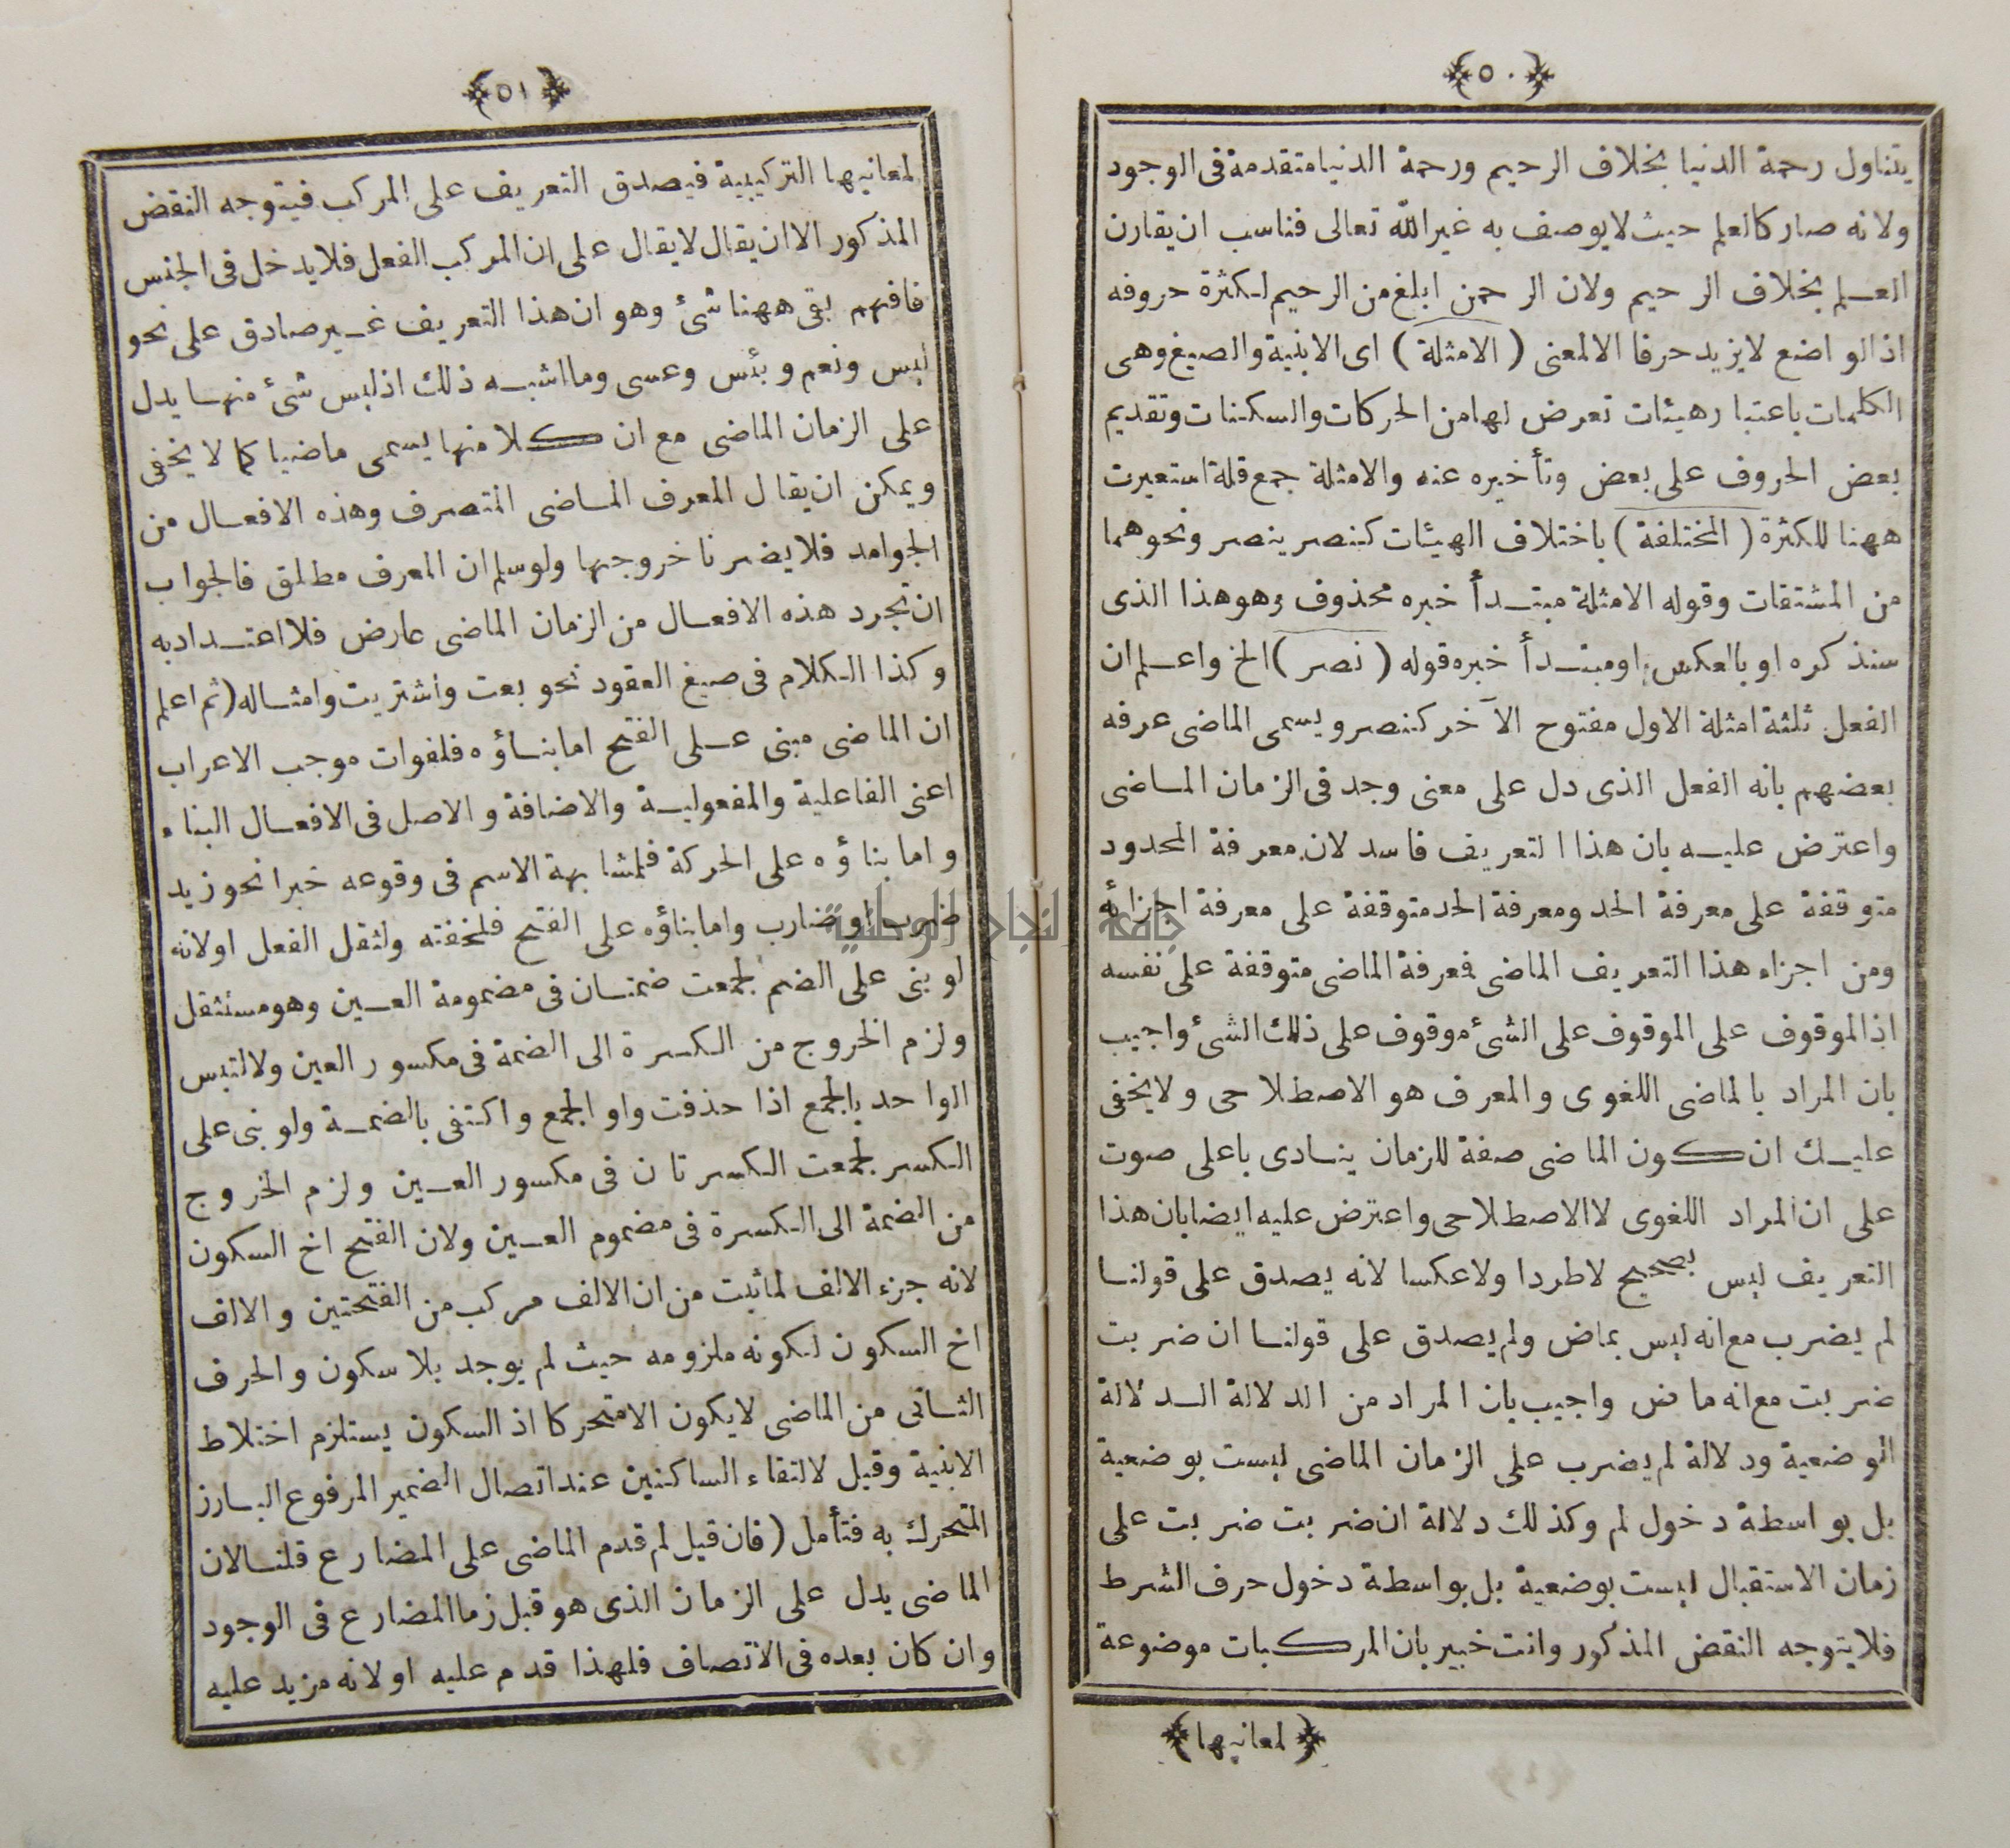 ﴿٥٠﴾
يتناول رحمة الدنيا بخلاف الرحيم ورحمة الدنيا متقدمة فى الوجود
ولانه صار كالعلم حيث لا يوصف به غير الله تعالى فناسب ان يقارن
العلم بخلاف الرحيم ولان الرحمن ابلغ من الرحيم لكثرة حروفه
اذ الواضع لا يزيد حرفا الا لمعنى (الامثلة) اى الابنية والصيغ وهى
الكلمات باعتبار هيئات تعرض لها من الحركات والسكنات وتقديم
بعض الحروف على بعض وتأخيره عنه والامثلة جمع قلة استعيرت
ههنا للكثرة (المختلفة) باختلاف الهيئات كنصر ينصر ونحوهما
من المشتقات وقوله الامثلة مبتدأ خبره محذوف وهو هذا الذى
سنذكره او بالعكس او مبتدأ خبره قوله (نصر) الخ واعلم ان
الفعل ثلثة امثلة الاول مفتوح الآخر كنصر ويسمى الماضى عرفه
بعضهم بانه الفعل الذى دل على معنى وجد فى الزمان الماضى
واعترض عليه بان هذا التعريف فاسد لان معرفة المحدود
متوقفة على معرفة الحد ومعرفة الحد متوقفة على معرفة اجزائه
ومن اجزاء هذا التعريف الماضى فعرفة الماضى متوقفة على نفسه
اذ الموقوف على الموقوف على الشئ موقوف على ذلك الشئ واجيب
بان المراد بالماضى اللغوى والمعرف هو الاصطلاحى ولا يخفى
عليك ان كون الماضى صفة للزمان ينادى باعلى صوت
على ان المراد اللغوى لا الاصطلاحى واعترض عليه ايضا بان هذا
التعريف ليس بصحيح لا طردا ولا عكسا لانه يصدق على قولنا
لم يضرب مع انه ليس بماض ولم يصدق على قولنا ان ضربت
ضربت مع انه ماض واجيب بان المراد من الدلالة الدلالة
الوضعية ودلالة لم يضرب على الزمان الماضى ليست بوضعية
بل بواسطة دخول لم وكذلك دلالة ان ضربت ضربت على
زمان الاستقبال ليست بوضعية بل بواسطة دخول حرف الشرط
فلا يتوجه النقض المذكور وانت خبير بان المركبات موضوعة
﴿لمعانيها﴾
﴿٥١﴾
لمعانيها التركيبية فيصدق التعريف على المركب فيتوجه النقض
المذكور الا ان يقال لا يقال على ان المركب الفعل فلا يدخل فى الجنس
فافهم بقى ههنا شئ وهو ان هذا التعريف غير صادق على نحو
ليس ونعم وبئس وعسى وما اشبه ذلك اذ ليس شئ منها يدل
على الزمان الماضى مع ان كلا منها يسمى ماضيا كما لا يخفى
ويمكن ان يقال المعرف الماضى المتصرف وهذه الافعال من
الجوامد فلا يضرنا خروجها ولو سلم ان المعرف مطلق فالجواب
ان تجرد هذه الافعال من الزمان الماضى عارض فلا اعتداد به
وكذا الكلام فى صيغ العقود نحو بعت واشتريت وامثاله (ثم اعلم
ان الماضى مبنى على الفتح اما بناؤه فلفوات موجب الاعراب
اعنى الفاعلية والمفعولية والاضافة والاصل فى الافعال البناء
واما بناؤه على الحركة فلمشابهة الاسم فى وقوعه خبرا نحو زيد
ضرب او ضارب واما بناؤه على الفتح فلخفته ولثقل الفعل اولانه
لو بنى على الضم لجمعت ضمتان فى مضمومة العين وهو مستثقل
ولزم الخروج من الكسرة الى الضمة فى مكسور العين ولالتبس
الواحد بالجمع اذا حذفت واو الجمع واكتفى بالضمة ولو بنى على
الكسر لجمعت الكسرتان فى مكسور العين ولزم الخروج
من الضمة الى الكسرة فى مضموم العين ولان الفتح اخ السكون
لانه جزء الالف لما ثبت من ان الالف مركب من الفتحتين والالف
اخ السكون لكونه ملزومه حيث لم يوجد بلا سكون والحرف
الثانى من الماضى لا يكون الا متحركا اذ السكون يستلزم اختلاط
الابنية وقيل لالتقاء الساكنين عند اتصال الضمير المرفوع البارز
المتحرك به فتأمل (فان قيل لم قدم الماضى على المضارع قلنا لان
الماضى يدل على الزمان الذى هو قبل زما المضارع فى الوجود
وان كان بعده فى الاتصاف فلهذا قدم عليه اولانه مزيد عليه
جامعة النجاح الوطنية